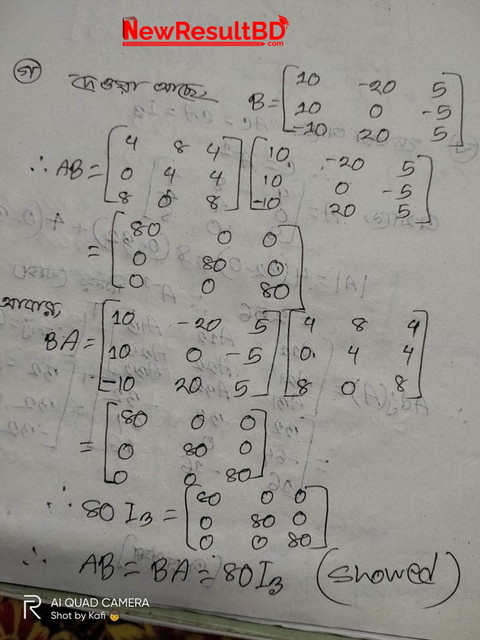 NewResultBD
.com
গ) দেওয়া আছে, B = [10 -20 5
10 0 -5
-10 20 5]
∴ AB = [4 8 4
0 4 4
8 0 8] [10 -20 5
10 0 -5
-10 20 5]
= [80 0 0
0 80 0
0 0 80]
আবার,
BA = [10 -20 5
10 0 -5
-10 20 5] [4 8 4
0 4 4
8 0 8]
= [80 0 0
0 80 0
0 0 80]
∴ 80 I₃ = [80 0 0
0 80 0
0 0 80]
∴ AB = BA = 80I₃ (Showed)
AI QUAD CAMERA
Shot by Kafi